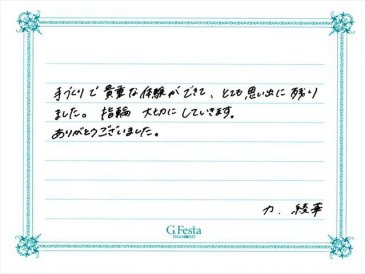 手づくりで貴重な体験ができて、とても思い出に残り
ました。指輪 大切にしていきます。
ありがとうございました。
力、綾華
G.Festa
DIAMOND